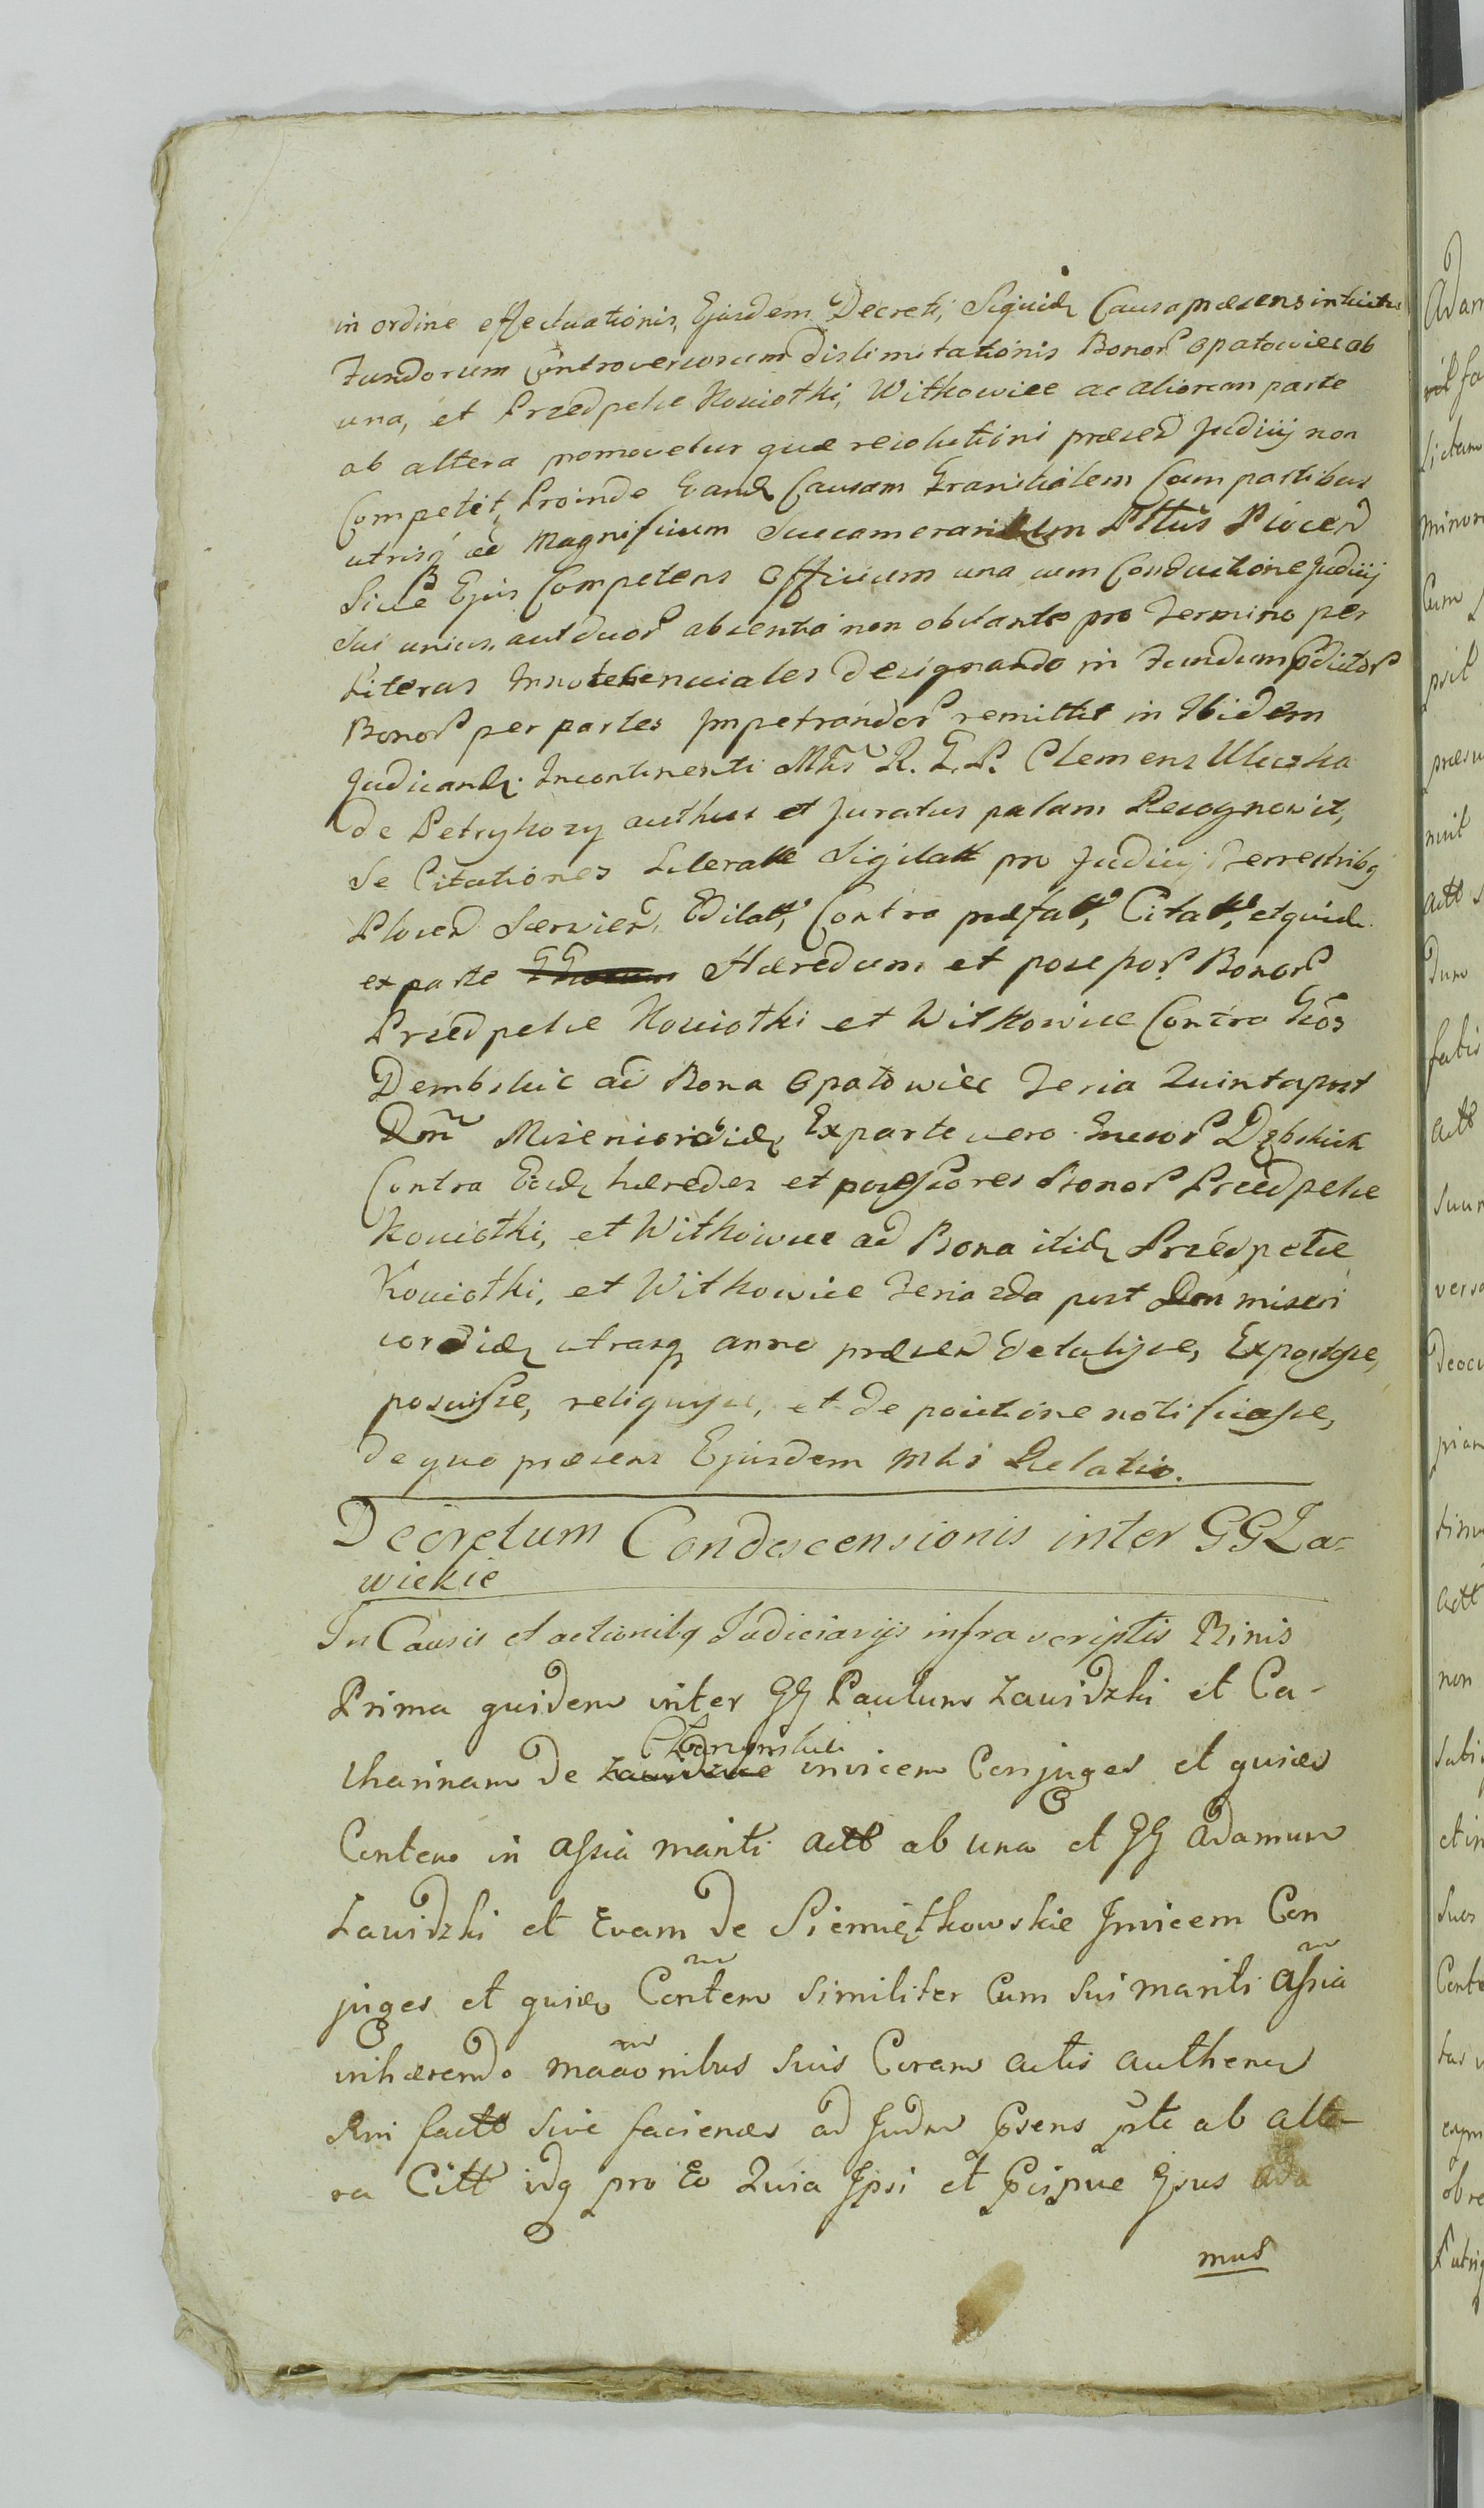 in ordine effectuationis, Ejusdem Decreti, Siquidē Causa præsens intuitu
Fundorum Controversorum dislimitationis Bonor. Opatowiec ab
una, et Przedpełce Kosciołki, Witkowice ac aliorum parte
ab altera promovetur quæ resolutioni præsen Judicij non
Competit, Proinde Eandē Causam Granitialem Cum partibus
utrisq. ad Magnificum Succamerarium Pttus Plocen
Sive Ejus Competens Officium una cum Conductione Judicij
Sui unius, aut duor. absentia non obstante pro Termino per
Literas Innotescenciales designando in Fundum pdictor.
Bonor. per partes Impetrandor. remittit in Ibidem
Judicandē. Incontinenti Mtis R. G. P. Clemens
de Petrykozy authus et Juratus palam Recognovit,
Se Citationes Literatt Sigilatt pro Judicij Terrestribq
Plocen Servien, Edilatt, Contra præfatt, Citatt, et quidē
ex parte Hæredum et possessor. Bonor.
Przedpełce Kosciołki et Witkowice Contra Gsos
Dembskie ad Bona Opatowiec Feria Quinta post
Dm̃ Misericordiæ, Ex parte vero Gnesor. Dębskich
Contra Eosdē hæredes et possessores Bonor. Przedpełce
Kosciołki, et Witkowice ad Bona itidē Przedpełce
Kosciołki, et Witkowice Feria 2da post Dom miseri
cordiæ, utrasq. anno præsen detulisse, Exportasse,
posuisse, reliquisse, et de positione notificasse,
de quo præsens Ejusdem Mtis Relatio.
Decretum Condescensionis inter GG Za=
wickie
In Causis et actionibq Judiciarijs infrascriptis Binis
Prima quidem inter GG Paulum Zawidzki et Ca-
tharinam de invicem Conjuges et quidē
Contem in assia mariti actt ab una et GG Adamum
Zawidzki et Evam de Siemiętkowskie Invicem Con
juges et quidē Contem similiter Cum sui mariti assia
inhærendo maãonibus suis Coram actis authen
sivi factt sive facien ad Judm psens pte ab alte-
ra Citt idq pro Eo Quia Ipsi et pcipue Gsus Ada
mus